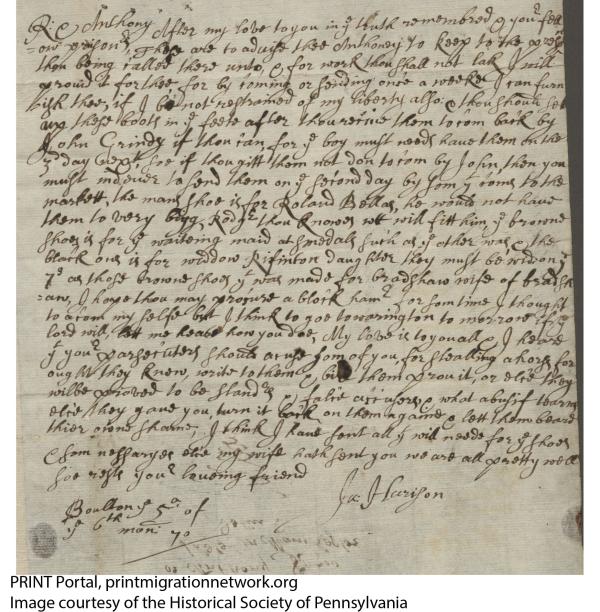 R: & Anthony After my love to you in ye truth remembered & your fell
=ow prisonr, These are to advise thee Anthoney to keep to the
thou being called there unto, & for work thou shall not lak I will
provid it for thee for by coming or sending once a weeke I can furn
ish thee, if I be not restrained of my liberty also: thou should set
up these boots in ye feete after thou receive them to com back by
John Grindy if thou can, for ye boy must needs have them on the
3 day next, soe if thou gitt them not don to com by John, then you
must indever to send them on ye second day by som yt coms to the
markett, the mans shoe is for Roland Bellas, he would not have
them to very bigg, Rodgr thou knowes wt will fitt him, ye browne
shoes is for ye waiteing maid at smedals such as ye other was & the
black ons is for widdow Rifinton daughter they must be
7s as those browne shoes yt was made for bradshaw wife of bradsh
=aw, I hope thou may procure a block hamr for somtime I thought
to a com my selfe but I think to goe to warington to morrow if ye
lord will, lett me heare how you doe, My love is to you all & I heare
yt your parsecuters should acuse som of you for stealling a hors for
ought they know, write to them & bid them prou it, or else they
wilbe proved to be slandrs & false accusers, & what abusif tearms
else they gave you, turn it back on them againe & lett them beare
thier owne shame, I think I have sent all yt will neede for ye shoes
& som nessaryes else my wife hath sent you we are all pretty well
soe rests your loveing friend
Ja: Harison
Boulton ye 5d of
ye 6th mon: 70
PRINT Portal, printmigrationnetwork.org
Image courtesy of the Historical Society of Pennsylvania